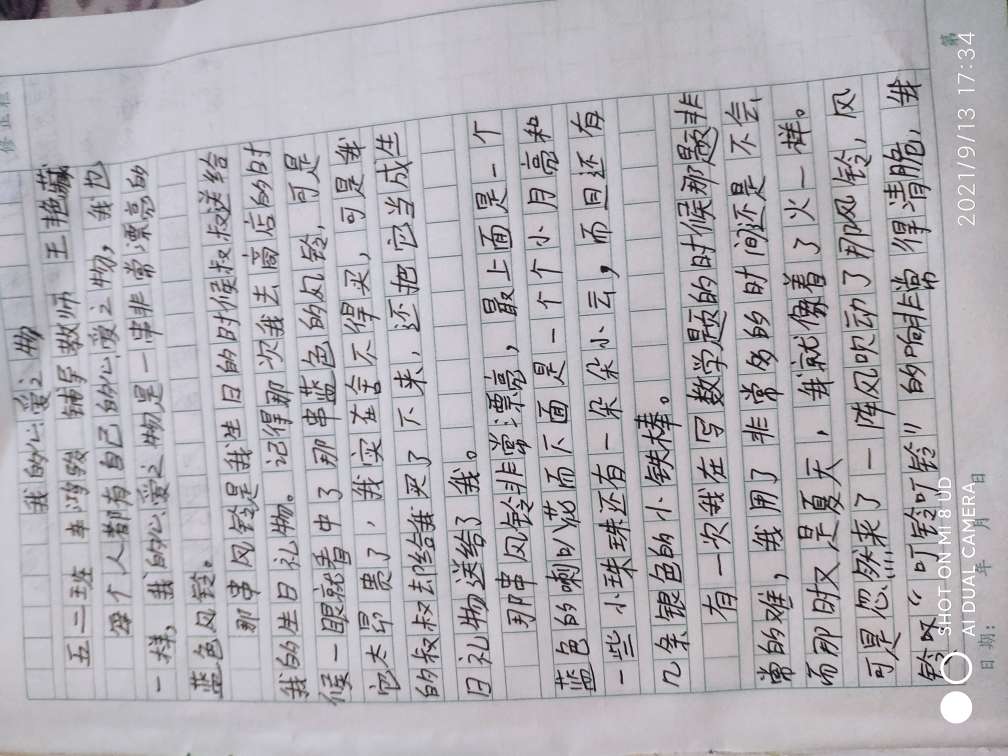 我的心爱之物
五二班 辅导教师 王艳
每个人都有自己的心爱之物，我也
一样，我的心爱之物是一串非常漂亮的
蓝色风铃。
那串风铃是我生日的时候叔叔送给
我的生日礼物。记得那次我去商店的时
候一眼就看中了那串蓝色的风铃，可是
它太昂贵了，我实在舍不得买，可是我
的叔叔却给我买了下来，还把它当成生
日礼物送给了我。
那串风铃非常漂亮，最上面是一个
蓝色的喇叭花而下面是一个个小月亮和
一些小珠珠还有一朵朵小云，而且还有
几条银色的小铁棒。
有一次我在写数学题的时候那题非
常的难，我用了非常多的时间还是不会，
而那时又是夏天，我就像着了火一样。
可是忽然来了一阵风吹动了那风铃，风
铃叹“叮铃叮铃”的响非常得清脆，我
修正栏
第
日期： 年 月 日
SHOT ON MI 8 UD
AI DUAL CAMERA
2021/9/13 17:34